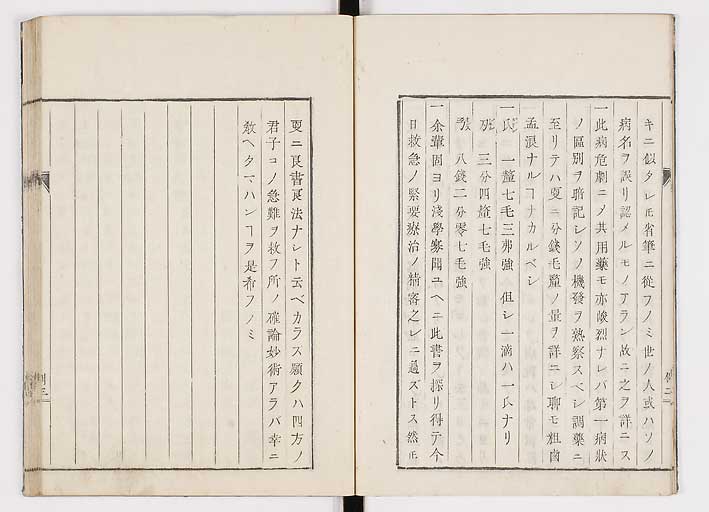 キニ似タレ𪜈省筆ニ從フノミ世ノ人或ハソノ
病名ヲ誤リ認メルモノアラン故ニ之ヲ詳ニス
一此病危劇ニ〆其用藥モ亦峻烈ナレバ第一病狀
ノ區別ヲ暗記シソノ機發ヲ熟察スベシ調藥ニ
至リテハ更ニ分錢毛釐ノ量ヲ詳ニシ聊モ粗鹵
孟浪ナルヿナカルベシ
一氏 一釐七毛三弗強 但シ一滴ハ一氏ナリ
三分四釐七毛強
八錢二分零七毛強
一余輩固ヨリ淺學寡聞ユヘニ此書ヲ探リ得テ今
日救急ノ緊要療治ノ精審之レニ過ズトス然𪜈
更ニ良書良法ナシト云ベカラス願クハ四方ノ
君子コノ急難ヲ救フ所ノ確論妙術アラバ幸ニ
敎ヘタマハンヿヲ是希フノミ